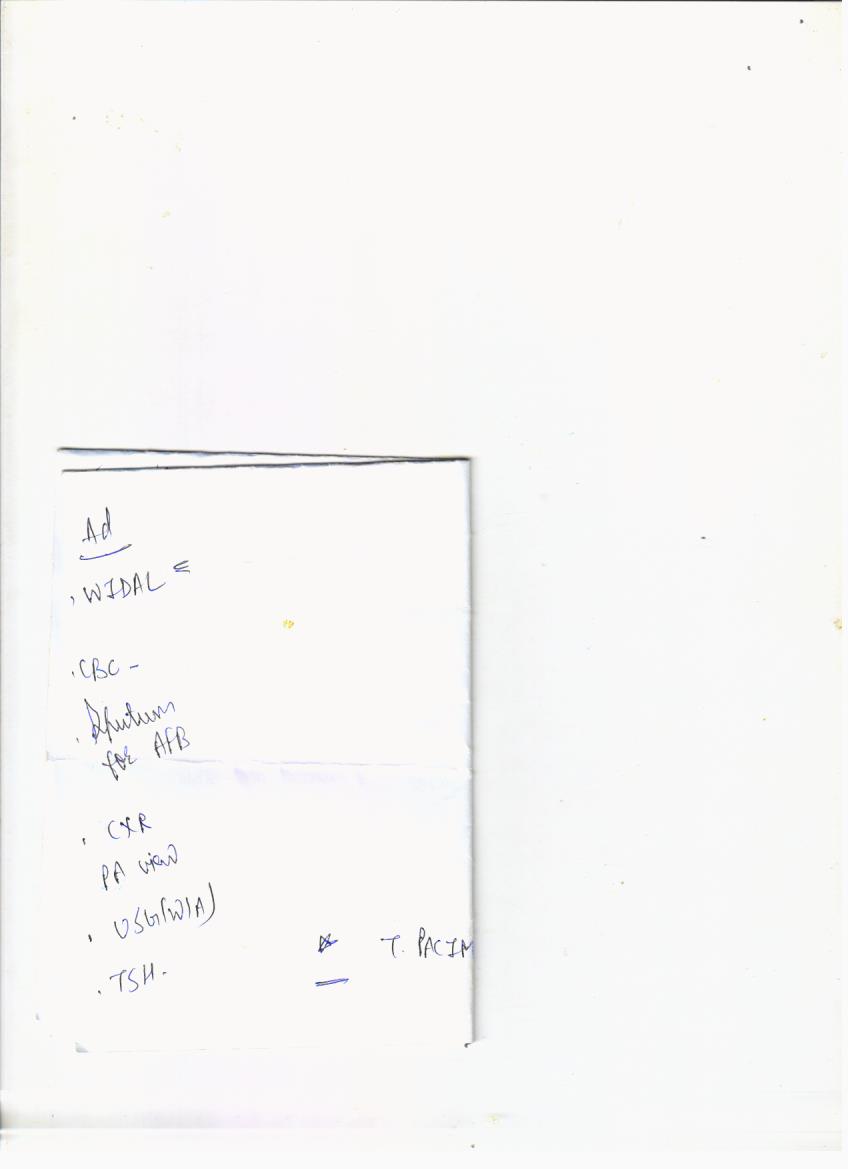 Ad
. WIDAL
. CBC -
. Sputum
for AFB
. CXR
PA view
. USG(W/A)
. TSH -
T. PACIM